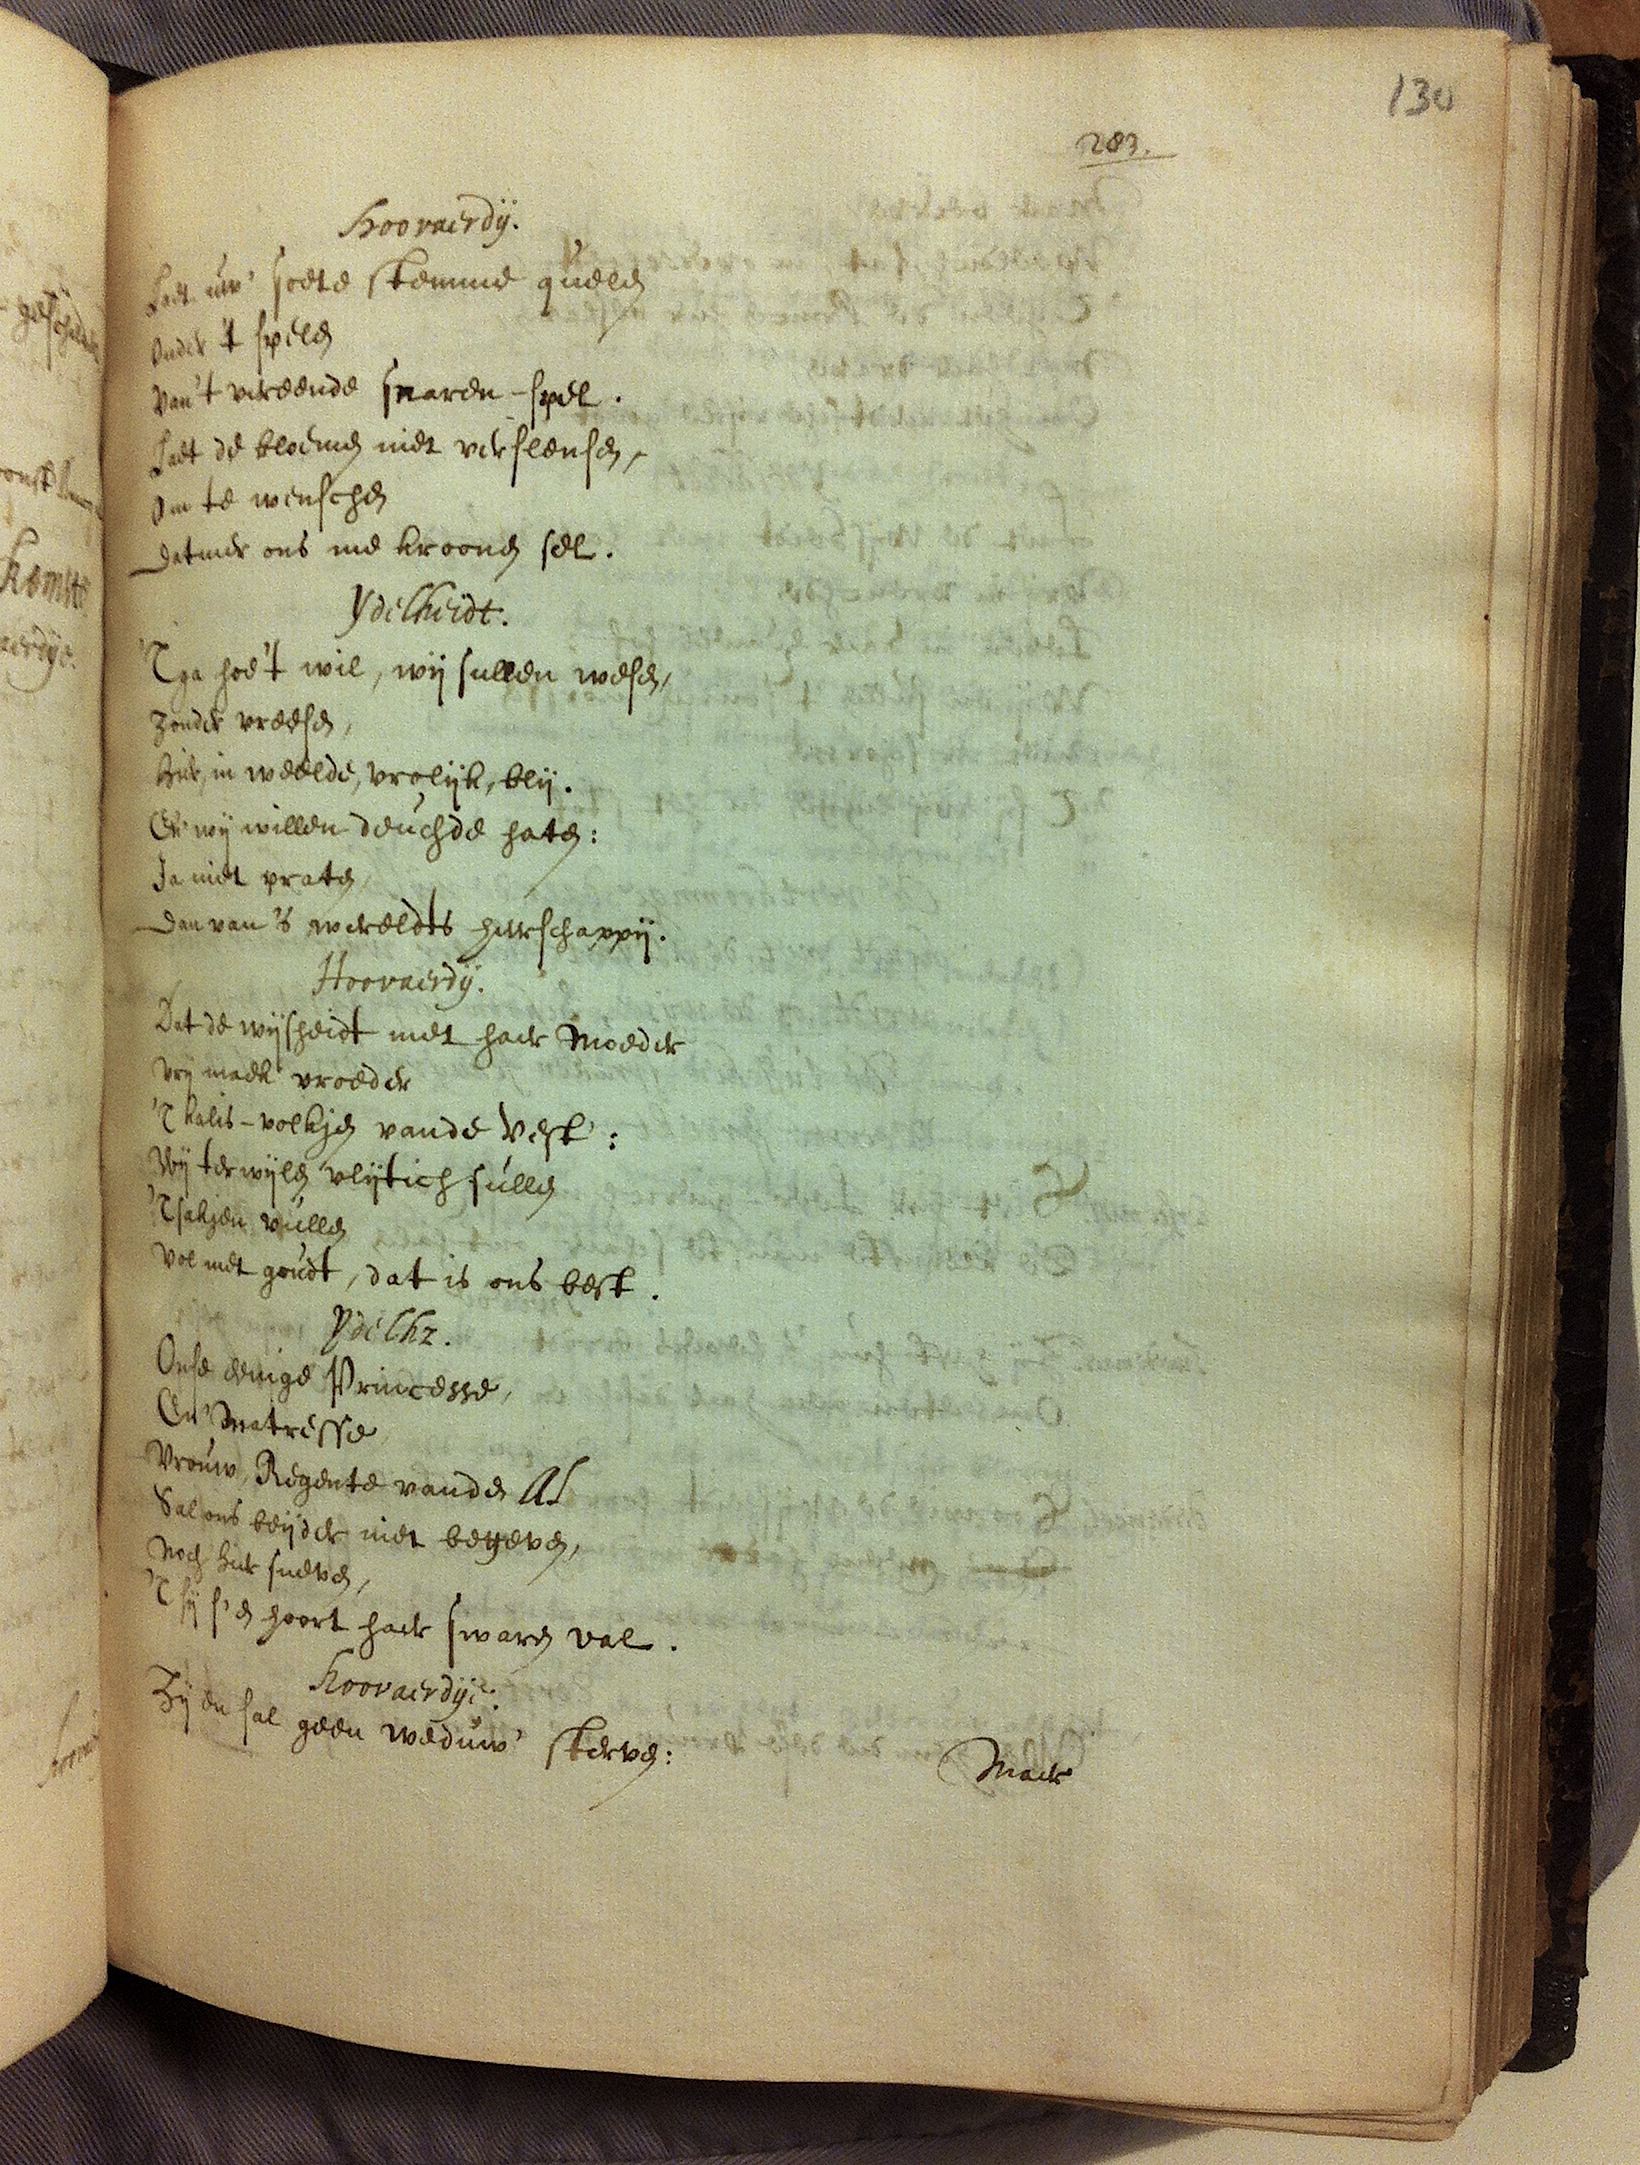 130
283.
Hoovaerdij.
Laet uw' soete stemme queelen
Onder 't speelen
Van 't vereende snaren-spel.
Laet de bloemen niet verslensen,
Om te wenschen
Datmer ons me kroonen sel.
Ydelheidt.
'T ga hoe 't wil, wij sullen wesen,
Zonder vreesen,
Hier, in weelde, vrolijk, blij.
En wij willen deuchde haten:
Ja niet praten
Dan van 's werelts heerschappij.
Hoovaerdij.
Dat de wijsheidt met haer Moeder
Vrij maek' vroeder
'T kalis-volkjen vande Vest:
Wij terwijlen vlijtich sullen
'T sakjen vullen
Vol met goudt, dat is ons best.
Ydelht.
Onse eenige Princesse,
En' Matresse
Vrouw, Regente vanden Al
Sal ons beijder niet begeven,
Noch hier sneven,
'T sij s'en hoort haer swaren val.
Hoovaerdije.
Zij en sal geen weduw' sterven:
Maer
geschild